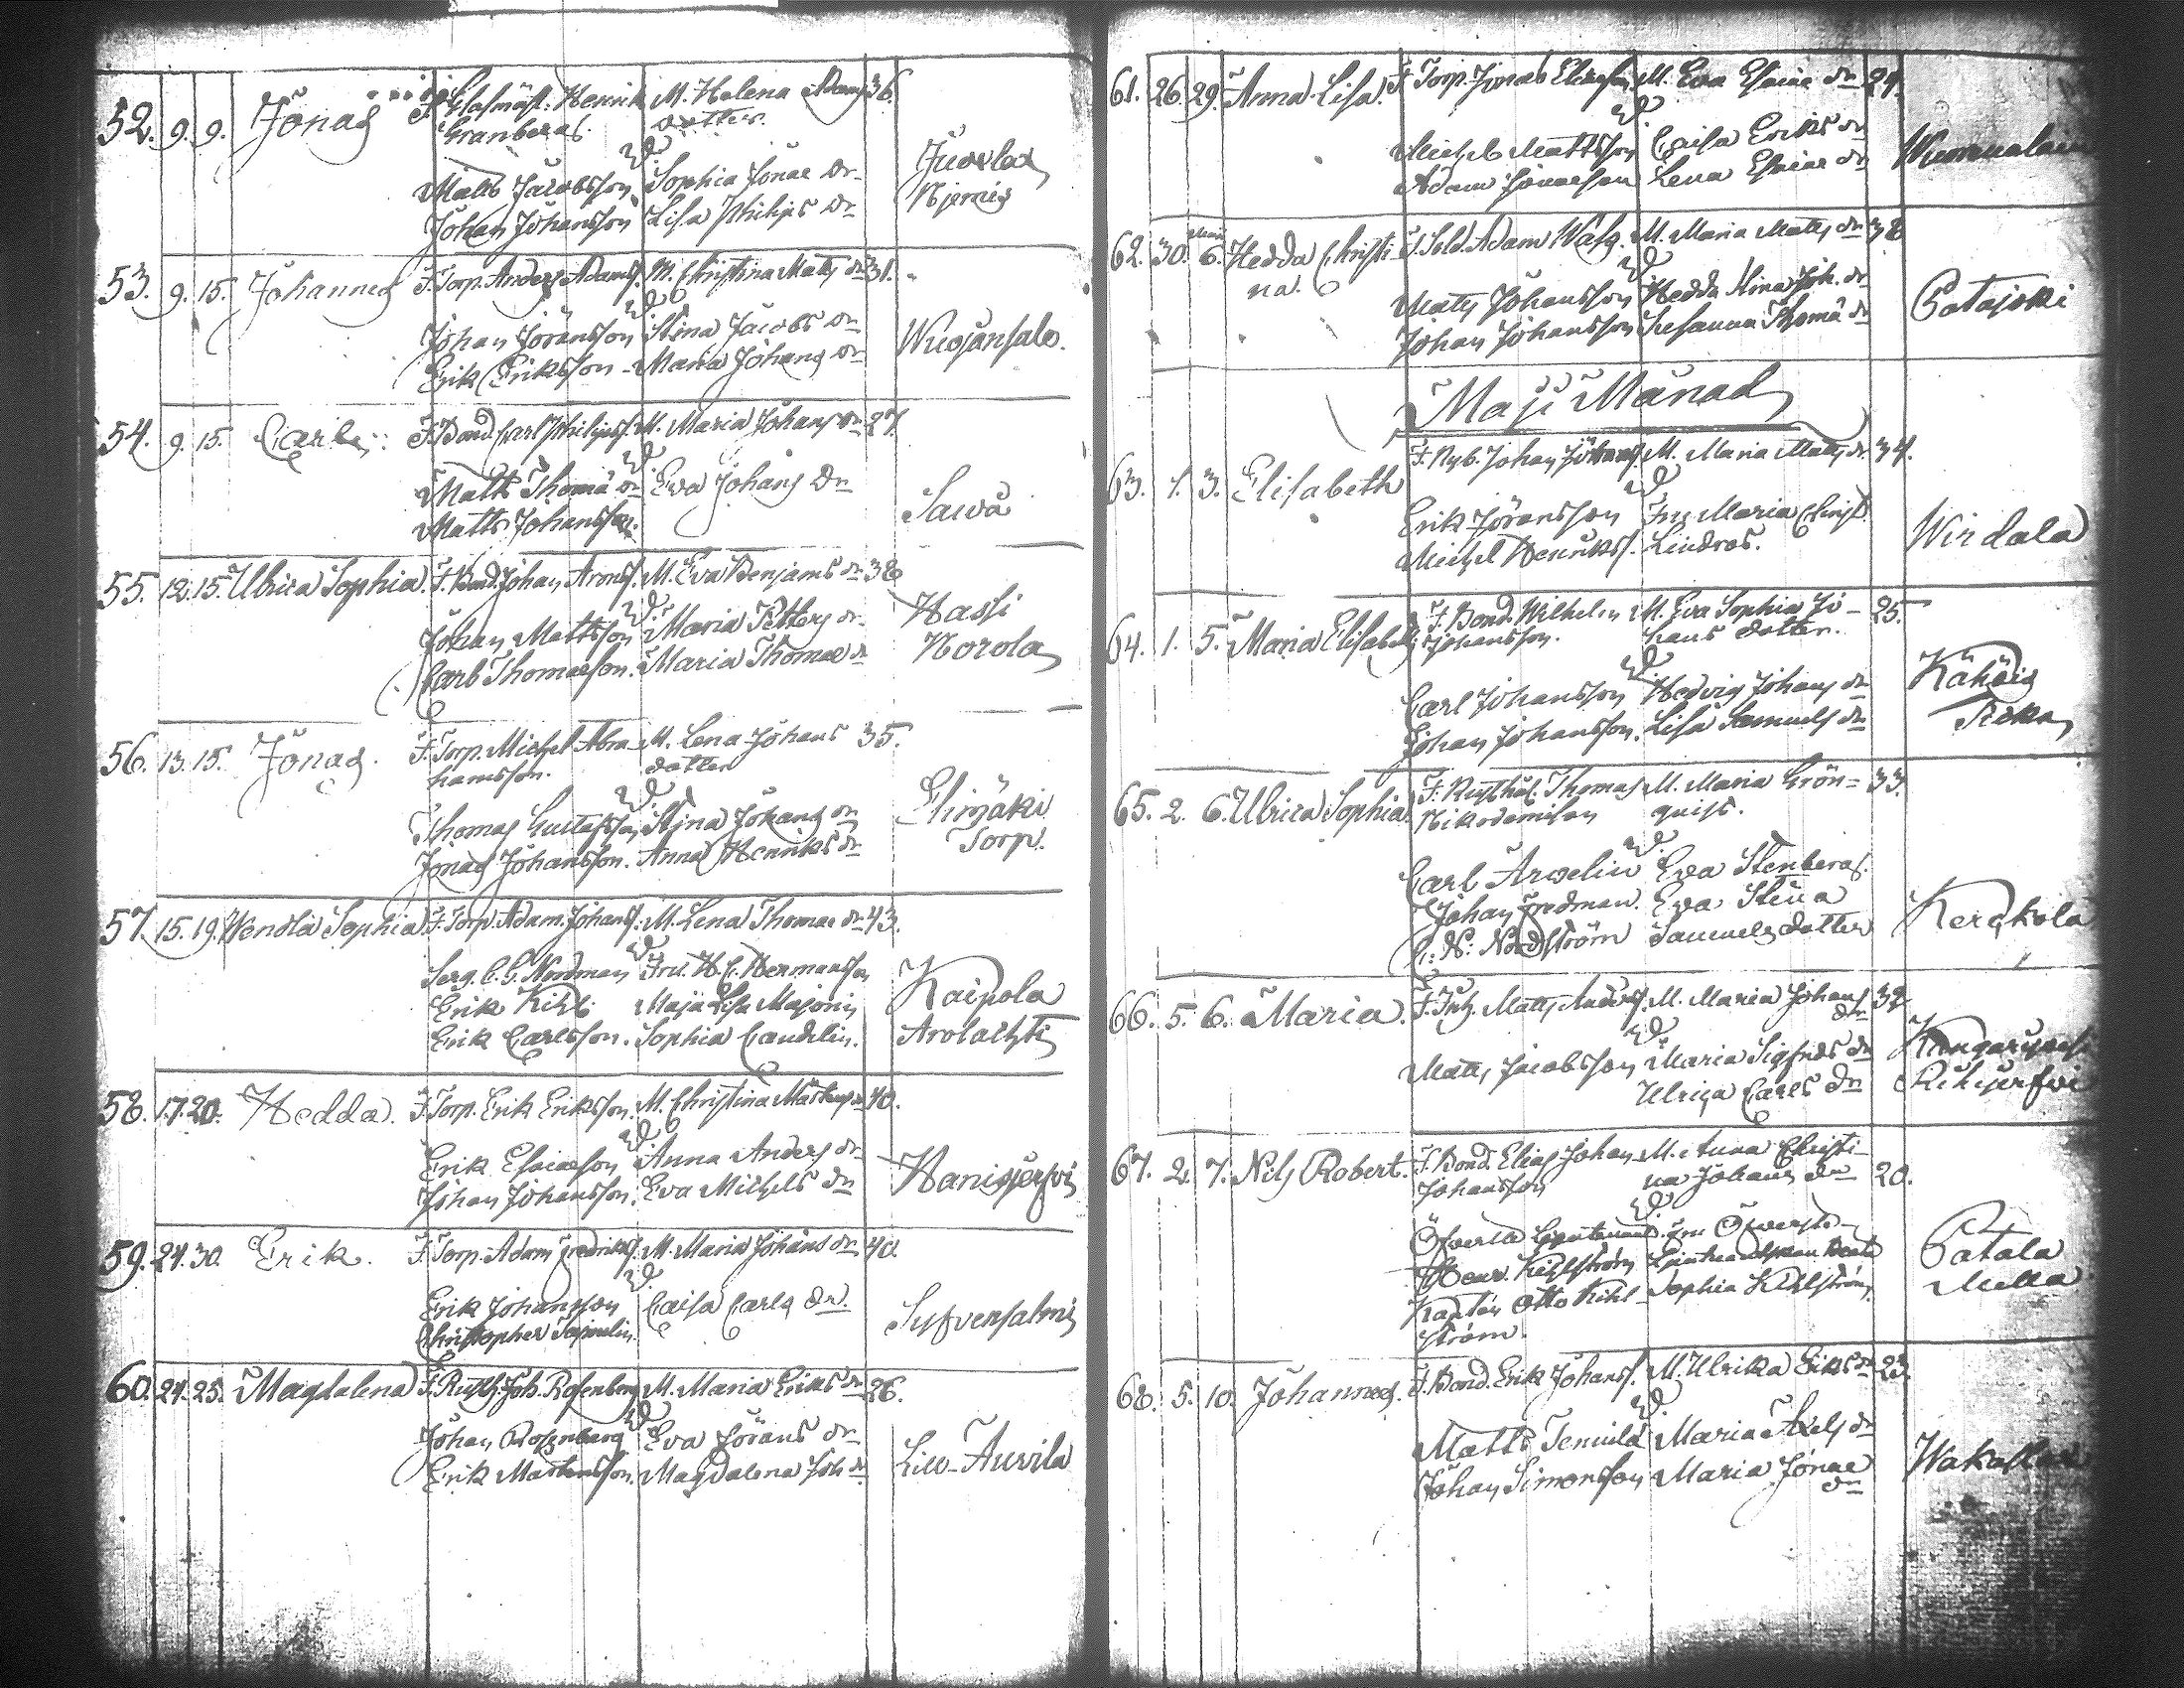 52. 9. 9. Jonas F. Henrik M. Helena Adams 36.
Granberg. dotter.
Matts Jacobsson Sophia Jonae dr
Johan Johansson Lisa Philips dr
Juorla
Niemis
53. 9. 15. Johannes F. Torp. Anders Adamss. M. Christina Matts dr 31.
Johan Jöransson Stina Jacobs dr
Erik Eriksson Maria Johans dr
Wuojansalo.
54. 9. 15. Carl F. Bond. Carl Philipss. M. Maria Johans dr 27.
Matts Thomæ Eva Johans dr
Matts Johansson.
Sawa
55. 12. 15. Ulrica Sophia. F. Bond. Johan Aronss. M. Eva Benjams dr 38
Johan Mattsson Maria Petters dr
Carl Thomasson. Maria Thomæ dr
Hassi
Horola
56. 13. 15. Jonas. F. Torp. Michel Abra- M. Lena Johans 35.
hamsson. dotter
Thomas Gustafsson Stina Johans dr
Jonas Johansson. Anna Henriks dr
Elimäki
Torp.
57. 15. 19. Wendla Sophia F. Torp. Adam Johanss. M. Lena Thomæ dr 43.
Serg. C. G. Nordman Fru H. C. Hermansson
Erik Kihl Maja Lisa Majorin
Erik Carlsson. Sophia Candelin.
Kaipola
Arolachti
58. 17. 20. Hedda. F. Torp. Erik Eriksson. M. Christina dr 40.
Erik Esaiæson Anna Anders dr
Johan Johansson. Eva Michels dr
Hanisjerfvi
59. 24. 30. Erik. F. Torp. Adam Fredrikss. M. Maria Johans dr 40.
Erik Johansson Caisa Carls dr.
Christopher
Syfvensalmi
60. 24. 25. Magdalena F. Joh. Rosenberg M. Maria Eriks dr 26.
Johan Rosenberg Eva Jörans dr
Erik Mårtensson. Magdalena Joh. dr
Liw-Auvila
61. 26. 29. Anna Lisa. F. Torp. Jonas Eliasson M. Eva Esaiæ dr
Michel Mattsson Caisa Eriks dr
Adam Jonasson Lena Esaiæ dr
62. 30. 6. Hedda Christi- F. Sold. Adam M. Maria Matts dr 38
na.
Matts Johansson Hedda Stina Joh. dr
Johan Johansson Susanna Thomæ dr
Patajoki
Maji Månad
63. 1. 3. Elisabeth F. Nyb. Johan M. Maria Matts dr 34.
Erik Jöransson Fru Maria Christ.
Michel Henrikss. Lindros.
Wirdala
64. 1. 5. Maria Elisabeth F. Bond. Wilhelm M. Eva Sophia Jo- 25.
Johansson. hans dotter.
Carl Johansson Hedvig Johans dr
Johan Johansson. Lisa Samuels dr
Kähöis
65. 2. 6. Ulrica Sophia. F. Thomas M. Maria Grön= 33.
Nikodemison quist.
Carl Arvelin Eva Stenberg.
Johan Fredman. Eva Stina
C. N. Nordström Samuels dotter
Kerckola
66. 5. 6. Maria. F. Inh. Matts Anderss. M. Maria Johans dr
Matts Jacobsson Maria Sigfrids dr
Ulrica Carls dr
67. 2. 7. Nils Robert. F. Bond. Elias Johan M. Anna Christi-
Johansson na Johans dr 20.
Öfverste Lieutenant Fru Öfverste-
Kihlström Lieutenantskan Beata
Otto Kihl- Sophia Kihlström
ström.
Patala
Mella
68. 5. 10. Johannes. F. Bond. Erik Johanss. M. Ulrika Eriks dr 23.
Matts Maria Axels dr
Johan Simonsson Maria Jonæ
dr